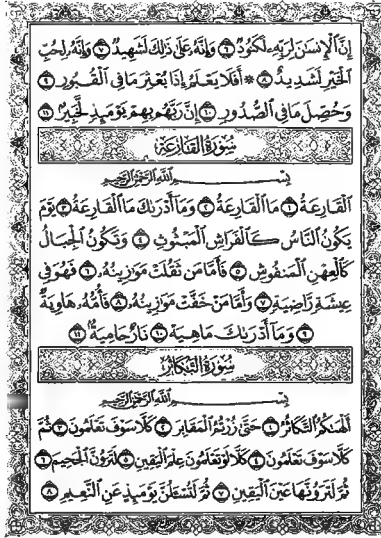 إِنَّ ٱلْإِنسَٰنَ لِرَبِّهِۦ لَكَنُودٌ ٦ وَإِنَّهُۥ عَلَىٰ ذَٰلِكَ لَشَهِيدٌ ٧ وَإِنَّهُۥ لِحُبِّ
ٱلْخَيْرِ لَشَدِيدٌ ٨ ۞ أَفَلَا يَعْلَمُ إِذَا بُعْثِرَ مَا فِى ٱلْقُبُورِ ٩
وَحُصِّلَ مَا فِى ٱلصُّدُورِ ١٠ إِنَّ رَبَّهُم بِهِمْ يَوْمَئِذٍ لَّخَبِيرٌۢ ١١
سُورَةُ القَارِعَةِ
بِسْمِ ٱللَّهِ ٱلرَّحْمَٰنِ ٱلرَّحِيمِ
ٱلْقَارِعَةُ ١ مَا ٱلْقَارِعَةُ ٢ وَمَآ أَدْرَىٰكَ مَا ٱلْقَارِعَةُ ٣ يَوْمَ
يَكُونُ ٱلنَّاسُ كَٱلْفَرَاشِ ٱلْمَبْثُوثِ ٤ وَتَكُونُ ٱلْجِبَالُ
كَٱلْعِهْنِ ٱلْمَنفُوشِ ٥ فَأَمَّا مَن ثَقُلَتْ مَوَٰزِينُهُۥ ٦ فَهُوَ فِى
عِيشَةٍ رَّاضِيَةٍ ٧ وَأَمَّا مَنْ خَفَّتْ مَوَٰزِينُهُۥ ٨ فَأُمُّهُۥ هَاوِيَةٌ
٩ وَمَآ أَدْرَىٰكَ مَا هِيَهْ ١٠ نَارٌ حَامِيَةٌۢ ١١
سُورَةُ التَّكَاثُرِ
بِسْمِ ٱللَّهِ ٱلرَّحْمَٰنِ ٱلرَّحِيمِ
أَلْهَىٰكُمُ ٱلتَّكَاثُرُ ١ حَتَّىٰ زُرْتُمُ ٱلْمَقَابِرَ ٢ كَلَّا سَوْفَ تَعْلَمُونَ ٣ ثُمَّ
كَلَّا سَوْفَ تَعْلَمُونَ ٤ كَلَّا لَوْ تَعْلَمُونَ عِلْمَ ٱلْيَقِينِ ٥ لَتَرَوُنَّ ٱلْجَحِيمَ ٦
ثُمَّ لَتَرَوُنَّهَا عَيْنَ ٱلْيَقِينِ ٧ ثُمَّ لَتُسْـَٔلُنَّ يَوْمَئِذٍ عَنِ ٱلنَّعِيمِ ٨